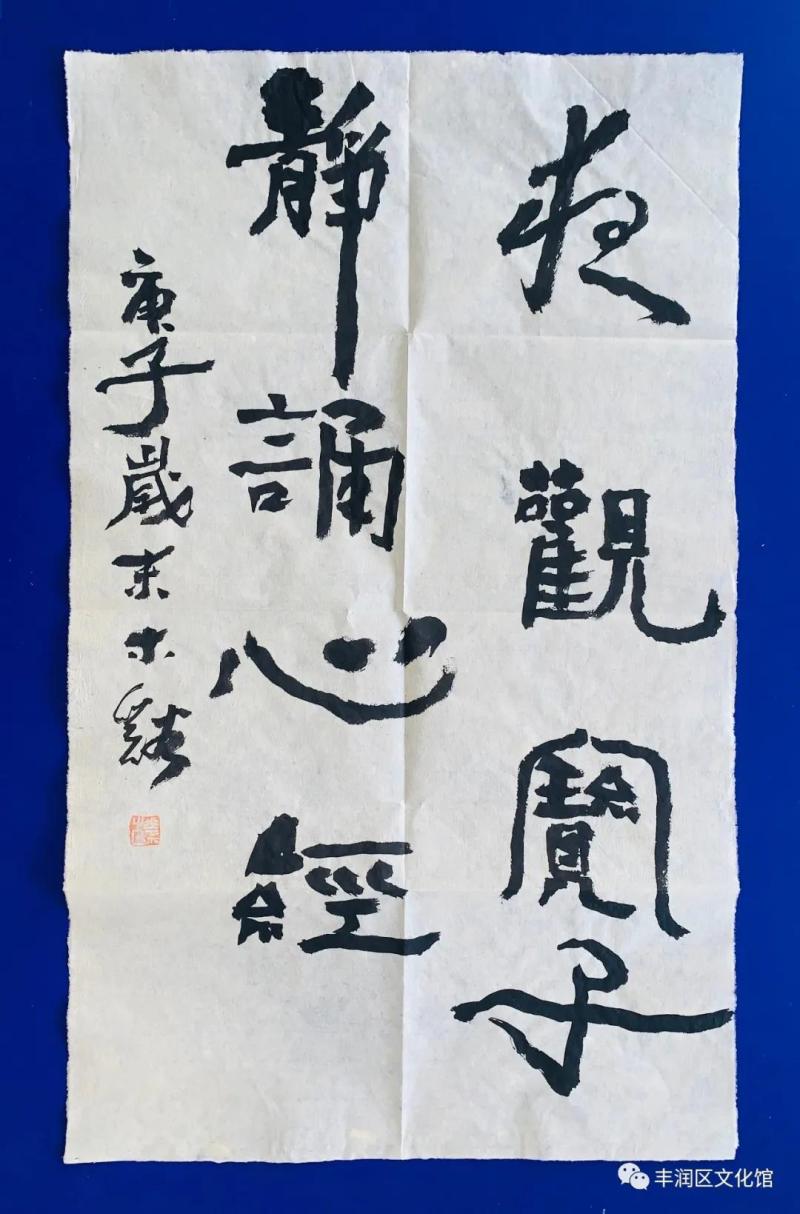 夜觀寶子
靜誦心經
庚子歲末木谿
丰润区文化馆